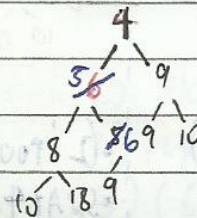 4
5 6 9
8 8 6 9 10
10 18 9